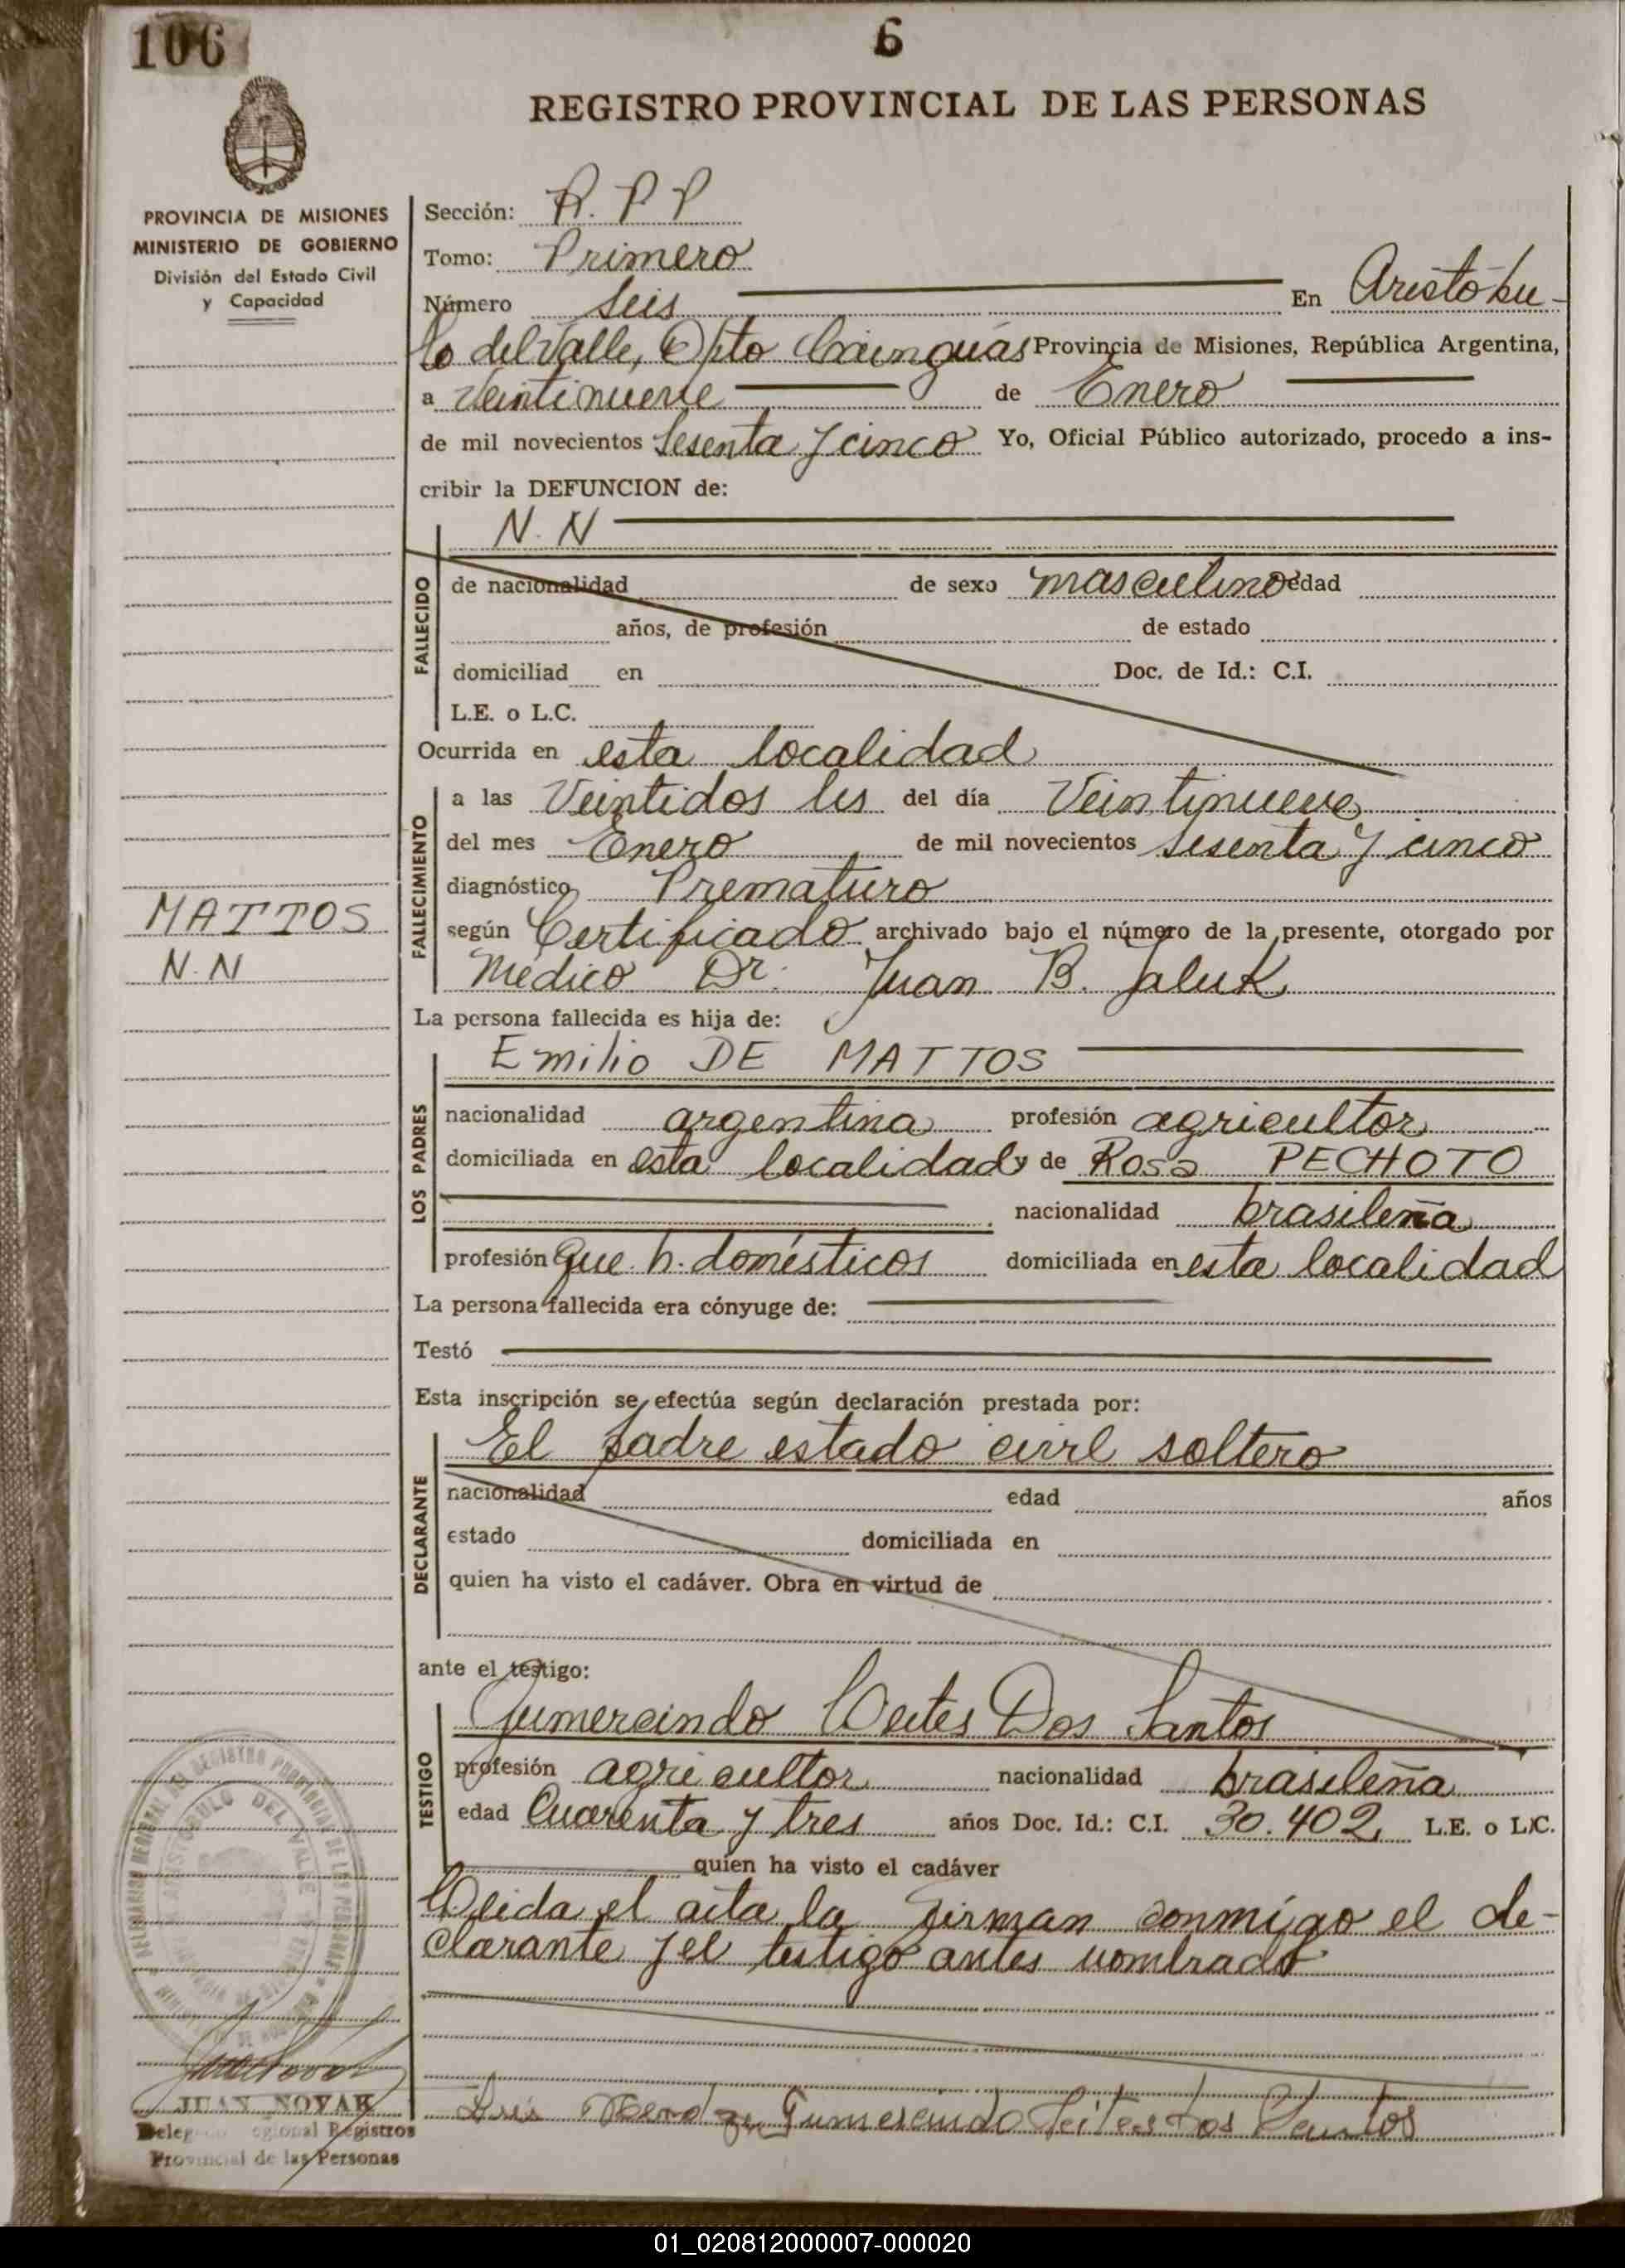 106
6
REGISTRO PROVINCIAL DE LAS PERSONAS
PROVINCIA DE MISIONES
MINISTERIO DE GOBIERNO
División del Estado Civil
y Capacidad
Sección: R. P P
Tomo: Primero
Número seis En Aristóbu-
lo del Valle, Dpto Cainguás Provincia de Misiones, República Argentina,
a Veintinueve de Enero
de mil novecientos Sesenta y cinco Yo, Oficial Público autorizado, procedo a ins-
cribir la DEFUNCION de:
N. N
FALLECIDO
de nacionalidad de sexo masculino edad
años, de profesión de estado
domiciliad en Doc. de Id.: C.I.
L.E. o L.C.
Ocurrida en esta localidad
FALLECIMIENTO
a las Veintidos hs del día Veintinueve
del mes Enero de mil novecientos sesenta y cinco
diagnóstico Prematuro
según Certificado archivado bajo el número de la presente, otorgado por
Médico Dr. Juan B. Jaluk
MATTOS
N. N
La persona fallecida es hija de:
LOS PADRES
Emilio DE MATTOS
nacionalidad argentina profesión agricultor
domiciliada en esta localidad y de Rosa PECHOTO
nacionalidad brasileña
profesión Que. h. domésticos domiciliada en esta localidad
La persona fallecida era cónyuge de:
Testó
Esta inscripción se efectúa según declaración prestada por:
DECLARANTE
El padre estado civil soltero
nacionalidad edad años
estado domiciliada en
quien ha visto el cadáver. Obra en virtud de
ante el testigo:
TESTIGO
Gumercindo Leites Dos Santos
profesión agricultor nacionalidad brasileña
edad Cuarenta y tres años Doc. Id.: C.I. 30.402 L.E. o L.C.
quien ha visto el cadáver
Leida el acta la firman conmigo el de-
clarante y el testigo antes nombrado
Gumercindo Leites Dos Santos
JUAN NOVAK
Registros
Provincial de las Personas
01_020812000007-000020